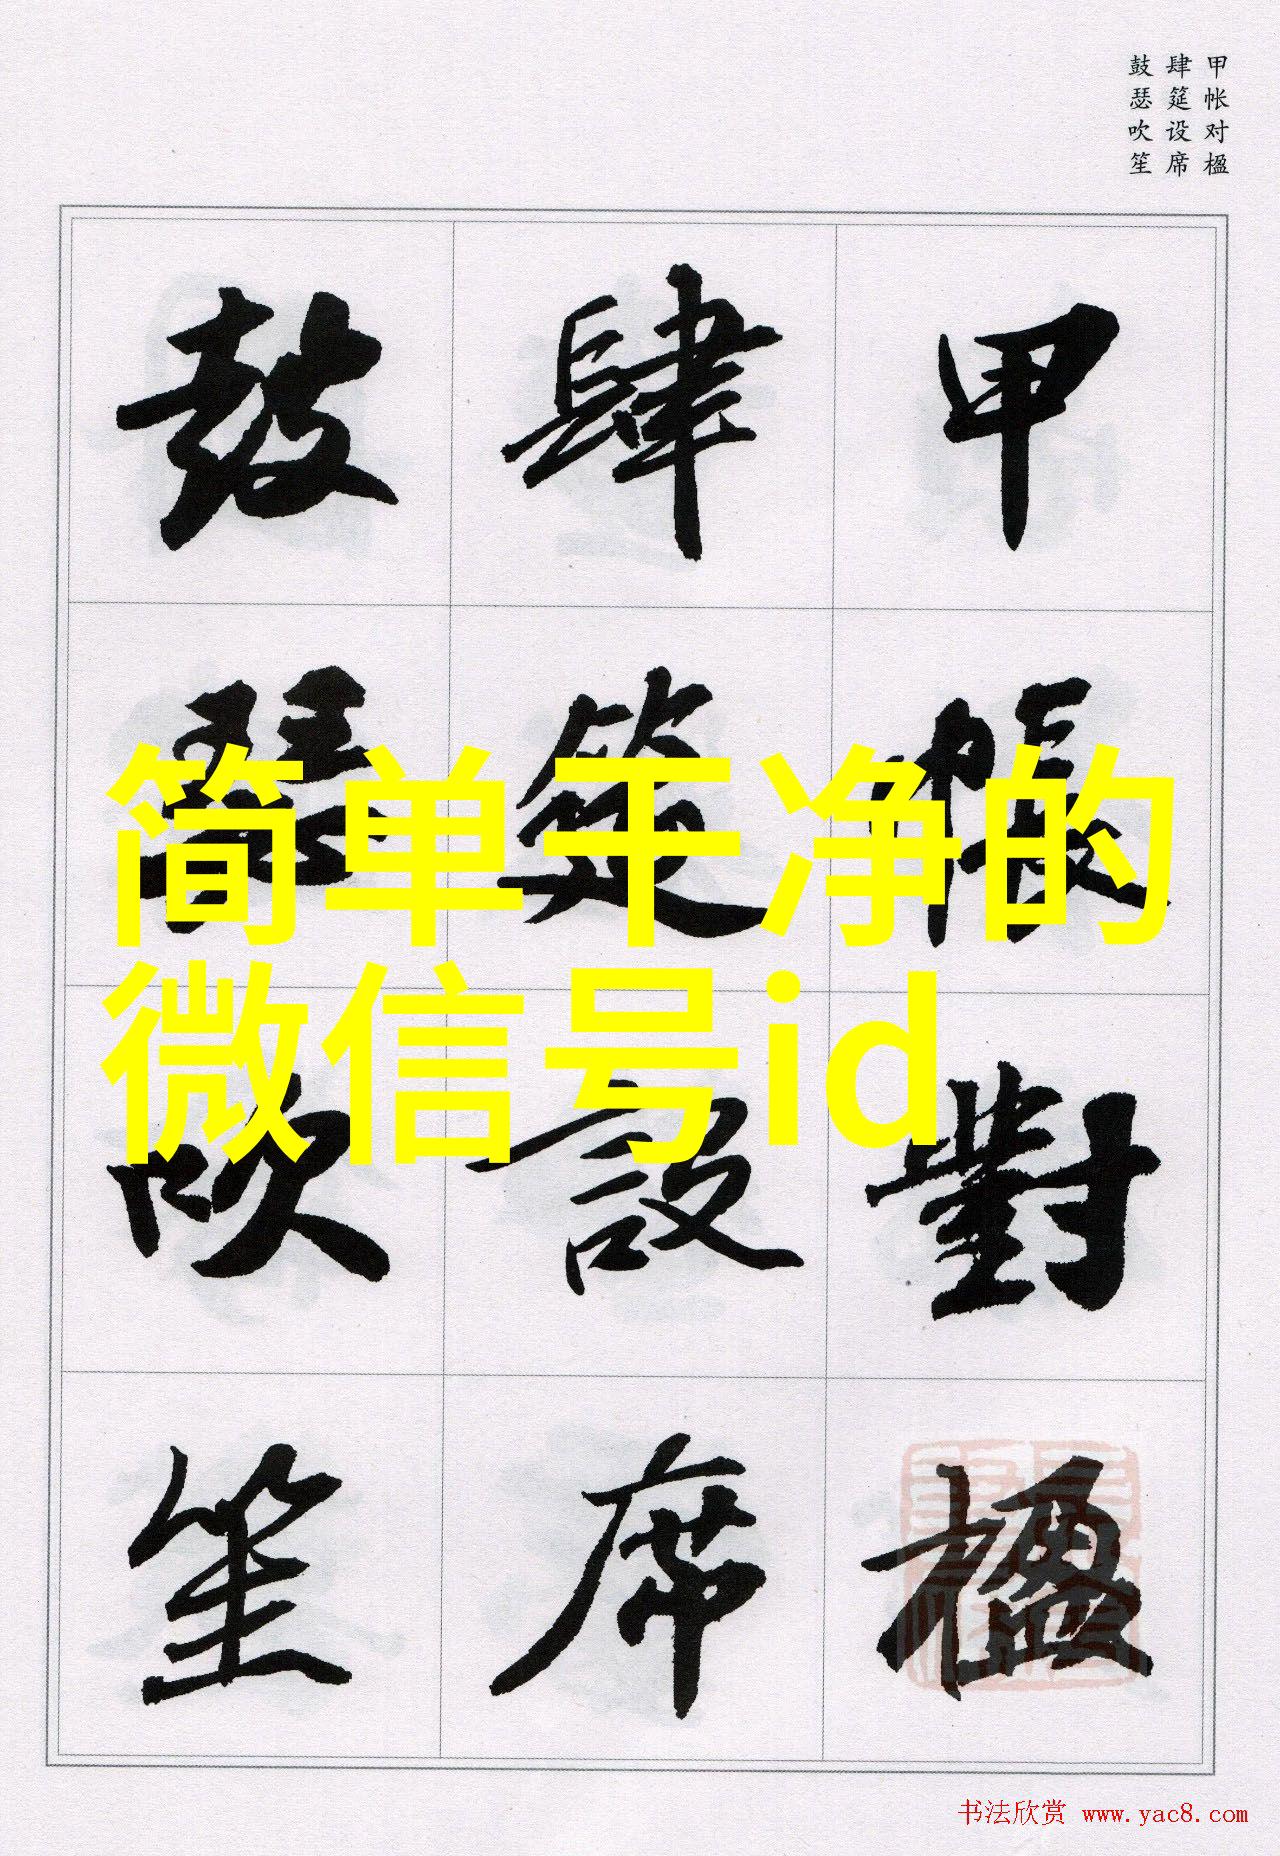 甲帐对楹
肆筵设席
鼓瑟吹笙
甲帳對楹
肆筵設席
鼓瑟吹笙
简单干净的
微信号id
书法欣赏 www.yac8.com